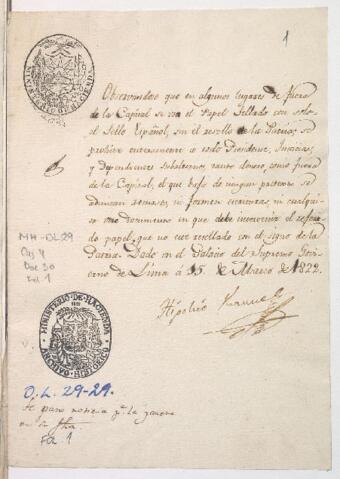 1
Observandose que en algunos lugares de fuera
de la Capital se usa el Papel Sellado con solo
el Sello Español, sin el resello de la Patria, se
prohive a todo Presidente, Justicias,
y Dependientes subalternos, tanto dentro, como fuera
de la Capital, el que bajo de ningun pretexto se
actuaciones, ni formen escrituras, ni cualquier
otro documento en que debe intervenir el referido
papel, que no esté resellado con el signo de la
Patria. Dado en el Palacio del Supremo Govi-
erno de Lima á 15 de Marzo de 1822.
Hipólito Unanue
MH-OL29
Caj 4
Doc 30
Fol 1
MINISTERIO·DE·HACIENDA
ARCHIVO HISTORICO
O.L. 29-29.
Se paso noticia
Fol. 1